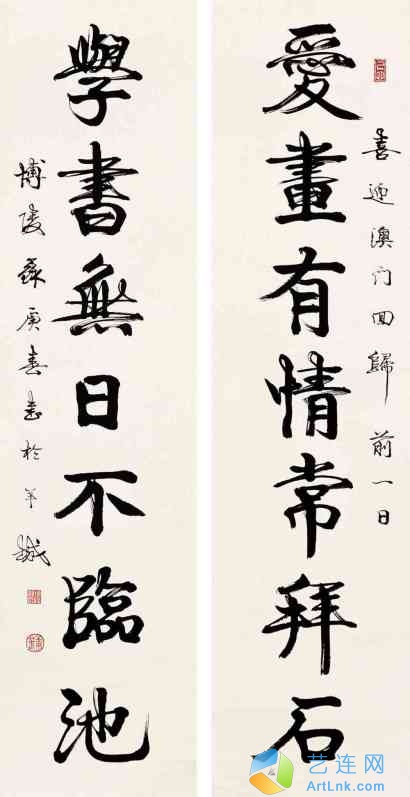 愛畫有情常拜石
喜迎澳门回歸前一日
學書無日不臨池
博陵蘇庚春書於羊城
艺连网
ArtLnk.com